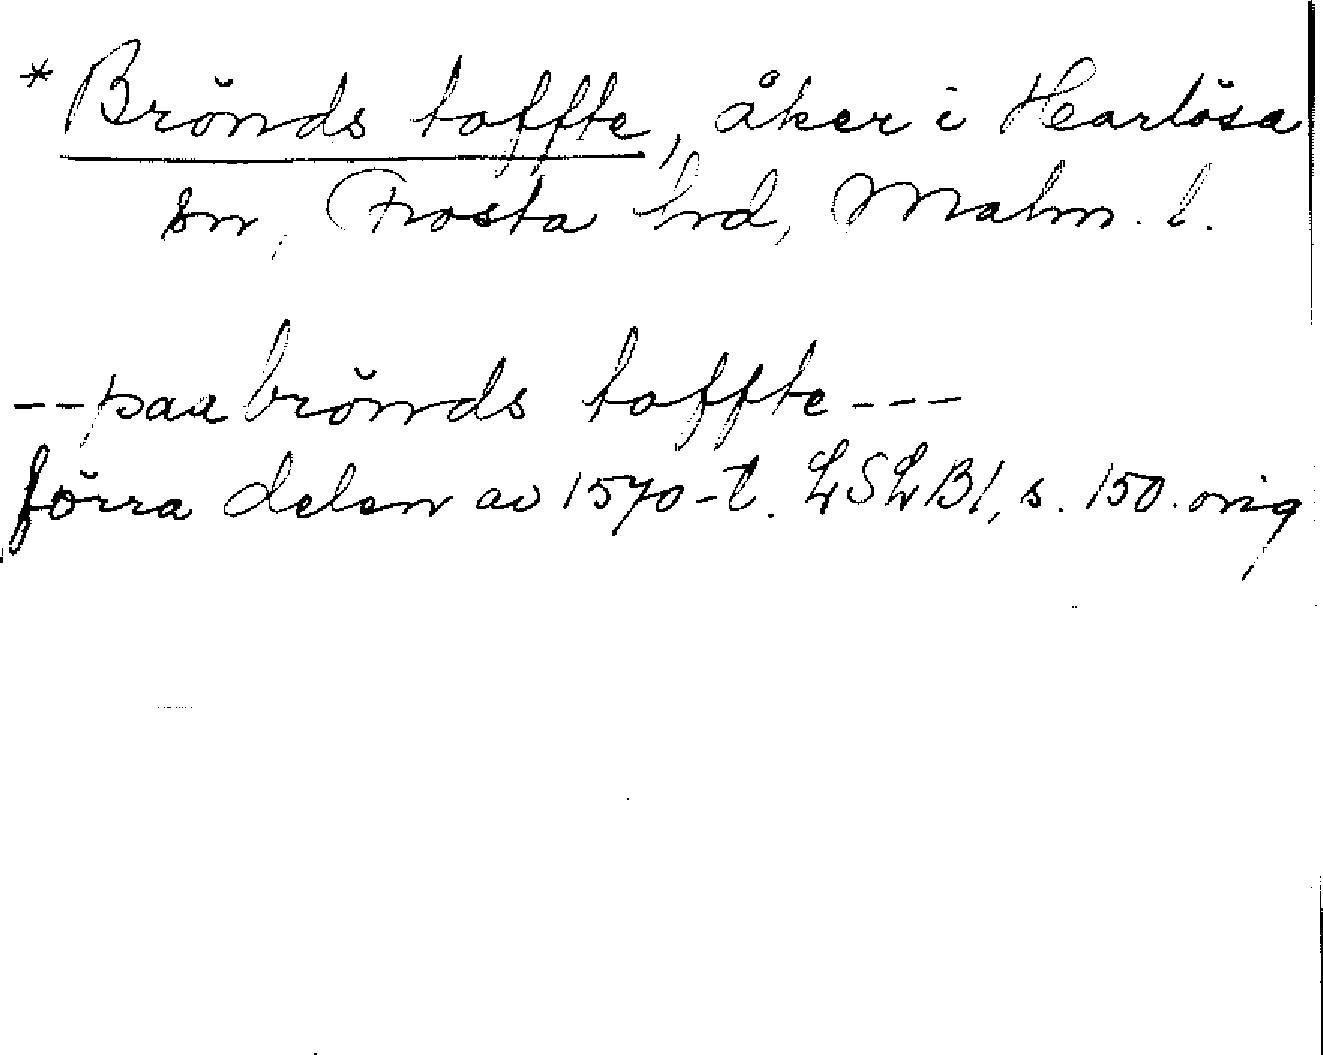 *Brönds toffte, åker i Harlösa
sn, Frosta hd, Malm. l.
--paa brönds toffte---
förra delen av 1570-t. LSLB1, s. 150. orig